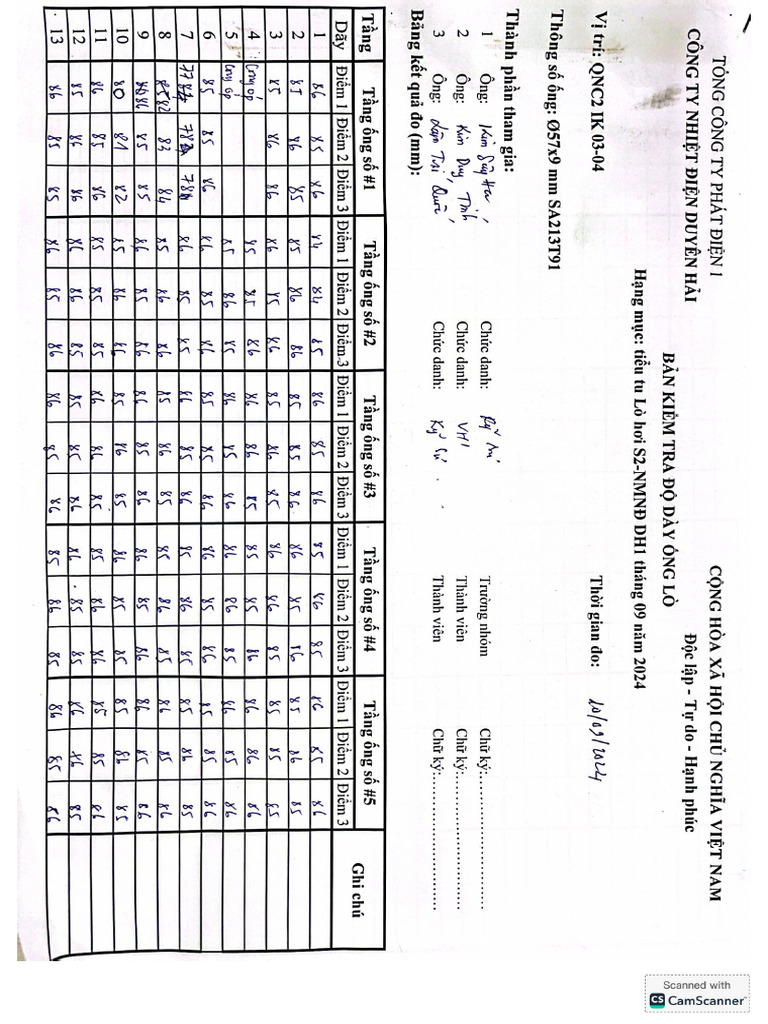 TỔNG CÔNG TY PHÁT ĐIỆN 1 CỘNG HÒA XÃ HỘI CHỦ NGHĨA VIỆT NAM
CÔNG TY NHIỆT ĐIỆN DUYÊN HẢI Độc lập - Tự do - Hạnh phúc
BẢN KIỂM TRA ĐỘ DÀY ỐNG LÒ
Hạng mục: tiểu tu Lò hơi S2-NMNĐ DH1 tháng 09 năm 2024
Vị trí: QNC2 IK 03-04 Thời gian đo: 20/09/2024
Thông số ống: Ø57x9 mm SA213T91
Thành phần tham gia:
1 Ông: Chức danh: Trưởng nhóm Chữ ký:
2 Ông: Kim Duy Tính Chức danh: VH1 Thành viên Chữ ký:
3 Ông: Chức danh: Kỹ Sư Thành viên Chữ ký:
Bảng kết quả đo (mm):
Tầng Tầng ống số #1 Tầng ống số #2 Tầng ống số #3 Tầng ống số #4 Tầng ống số #5 Ghi chú
Dãy Điểm 1 Điểm 2 Điểm 3 Điểm 1 Điểm 2 Điểm 3 Điểm 1 Điểm 2 Điểm 3 Điểm 1 Điểm 2 Điểm 3 Điểm 1 Điểm 2 Điểm 3
1 86 85 86 84 84 85 86 85 86 85 86 85 86 85 86
2 85 86 85 85 86 86 85 85 86 86 85 86 85 86 85
3 85 86 86 86 85 86 85 86 85 86 86 85 85 85 85
4 Cong óp 85 85 86 86 86 85 85 85 86 86 86 86
5 Cong óp 85 86 85 86 85 86 86 86 85 86 85 86
6 85 85 86 86 85 86 85 85 86 86 85 86 85 85 86
7 77 78 78 86 85 85 86 85 86 85 86 85 85 86 85
8 82 83 84 85 86 86 85 86 85 85 86 85 86 85 86
9 86 85 85 86 85 86 86 85 86 86 85 86 86 85 86
10 80 81 82 85 86 86 85 86 85 86 85 85 85 86 85
11 86 85 86 85 85 85 86 86 85 85 86 86 85 85 86
12 85 86 86 86 86 85 85 85 86 86 85 85 86 86 85
13 86 85 85 86 85 86 86 85 86 85 86 85 86 85 86
Scanned with
CS CamScanner